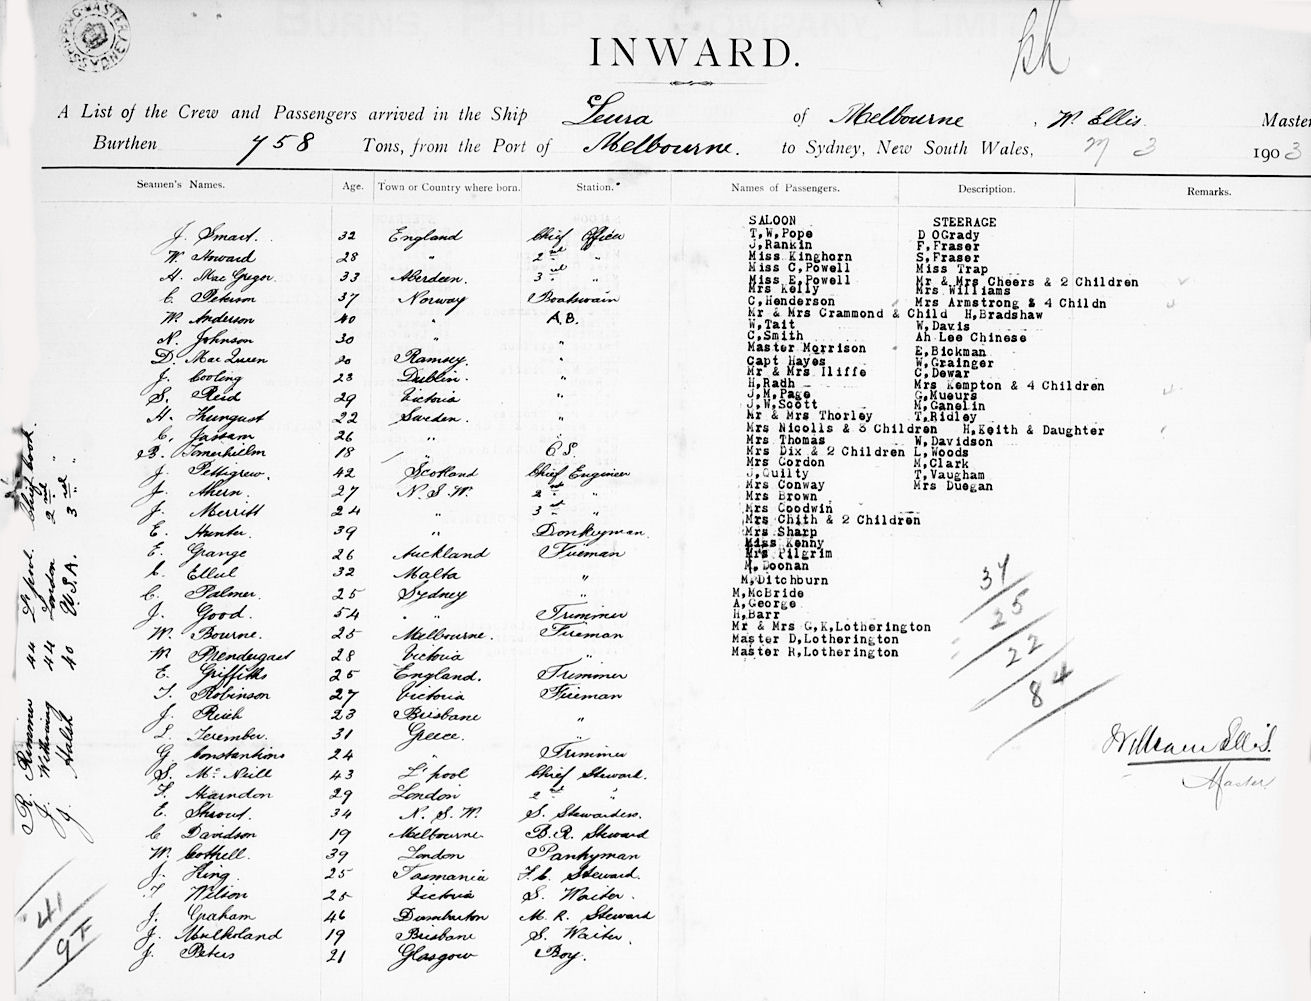 INWARD.
A List of the Crew and Passengers arrived in the Ship Leura of Melbourne, W. Ellis. Master
Burthen 758 Tons, from the Port of Melbourne. to Sydney, New South Wales, 3 1903
Seamen's Names. Age. Town or Country where born. Station. Names of Passengers. Description. Remarks.
J. Smart. 32 England Chief Officer
W. Howard 28 " 2nd "
H. Mac Gregor 33 Aberdeen. 3rd "
C. Peterson 37 Norway Boatswain
W. Anderson 40 " A.B.
N. Johnson 30 " "
D. Mac Queen 20 Ramsey. "
J. Cooling 23 Dublin. "
S. Reid 29 Victoria "
H. Hungust 22 Sweden. "
C. Jassam 26 " "
18 " O.S.
J. Pettigrew. 42 Scotland Chief Engineer
J. Ahern. 27 N.S.W. 2nd "
J. Merritt 24 " 3rd "
E. Hunter 39 " Donkeyman.
E. Grange 26 Auckland Fireman
E. Ellul 32 Malta "
C. Palmer. 25 Sydney "
J. Good. 54 " Trimmer
W. Bourne. 25 Melbourne. Fireman
W. Prendergast 28 Victoria "
E. Griffiths 25 England. Trimmer
T. Robinson 27 Victoria Fireman
J. Reich 23 Brisbane "
31 Greece.
G. Constantions 24 Trimmer
S. Mc Neill 43 L'pool Chief Steward.
T. Harndon 29 London 2nd "
E. Shrout. 34 N.S.W. S. Stewardess.
C Davidson 19 Melbourne B.R. Steward
W. Cothell. 39 London Pantryman
J. King. 25 Tasmania F.C. Steward.
T Wilson 25 Victoria S. Waiter.
J. Graham 46 Dumbarton M.R. Steward
J. Mulholand 19 Brisbane S. Waiter.
J. Peters 21 Glasgow Boy.
R. Rimmer 44 L'pool. Chief Cook.
J. 44 London 2nd "
J. Halsh 40 U.S.A. 3rd "
41
97
SALOON
T,W,Pope
J,Rankin
Miss Kinghorn
Miss C,Powell
Miss E,Powell
Mrs Kelly
C,Henderson
Mr & Mrs Crammond & Child
W,Tait
C,Smith
Master Morrison
Capt Hayes
Mr & Mrs Iliffe
H,Radh
J,M,Page
J,W,Scott
Mr & Mrs Thorley
Mrs Nicolls & 3 Children
Mrs Thomas
Mrs Dix & 2 Children
Mrs Cordon
J,Quilty
Mrs Conway
Mrs Brown
Mrs Goodwin
Mrs Chith & 2 Children
Mrs Sharp
Miss Kenny
Mrs Pilgrim
M,Doonan
M,Ditchburn
M,McBride
A,George
H,Barr
Mr & Mrs G,K,Lotherington
Master D,Lotherington
Master R,Lotherington
STEERAGE
D OGrady
F,Fraser
S,Fraser
Miss Trap
Mr & Mrs Cheers & 2 Children
Mrs Williams
Mrs Armstrong & 4 Childn
H,Bradshaw
W,Davis
Ah Lee Chinese
E,Bickman
W,Grainger
C,Dewar
Mrs Kempton & 4 Children
G,Mueurs
M,Ganelin
T,Ridley
H,Keith & Daughter
W,Davidson
L,Woods
M,Clark
T,Vaugham
Mrs Duegan
37
25
22
84
William Ellis.
Master